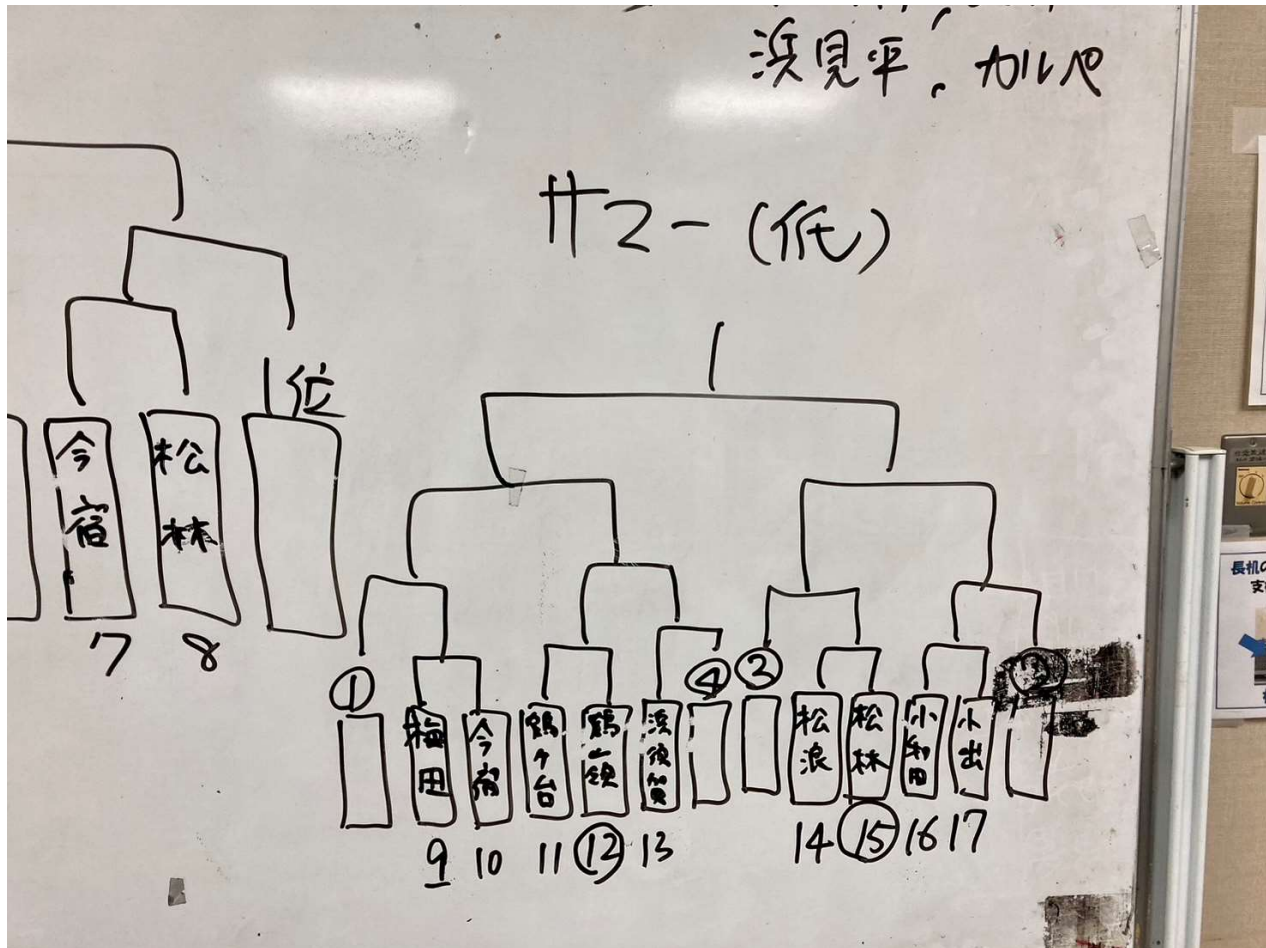 浜見平、カルペ
サマー(低)
1位
今宿
松林
7
8
①
④
③
梅田
今宿
鶴ヶ台
鶴嶺
浜須賀
松浪
松林
小和田
小出
9
10
11
⑫
13
14
⑮
16
17
長机の
支